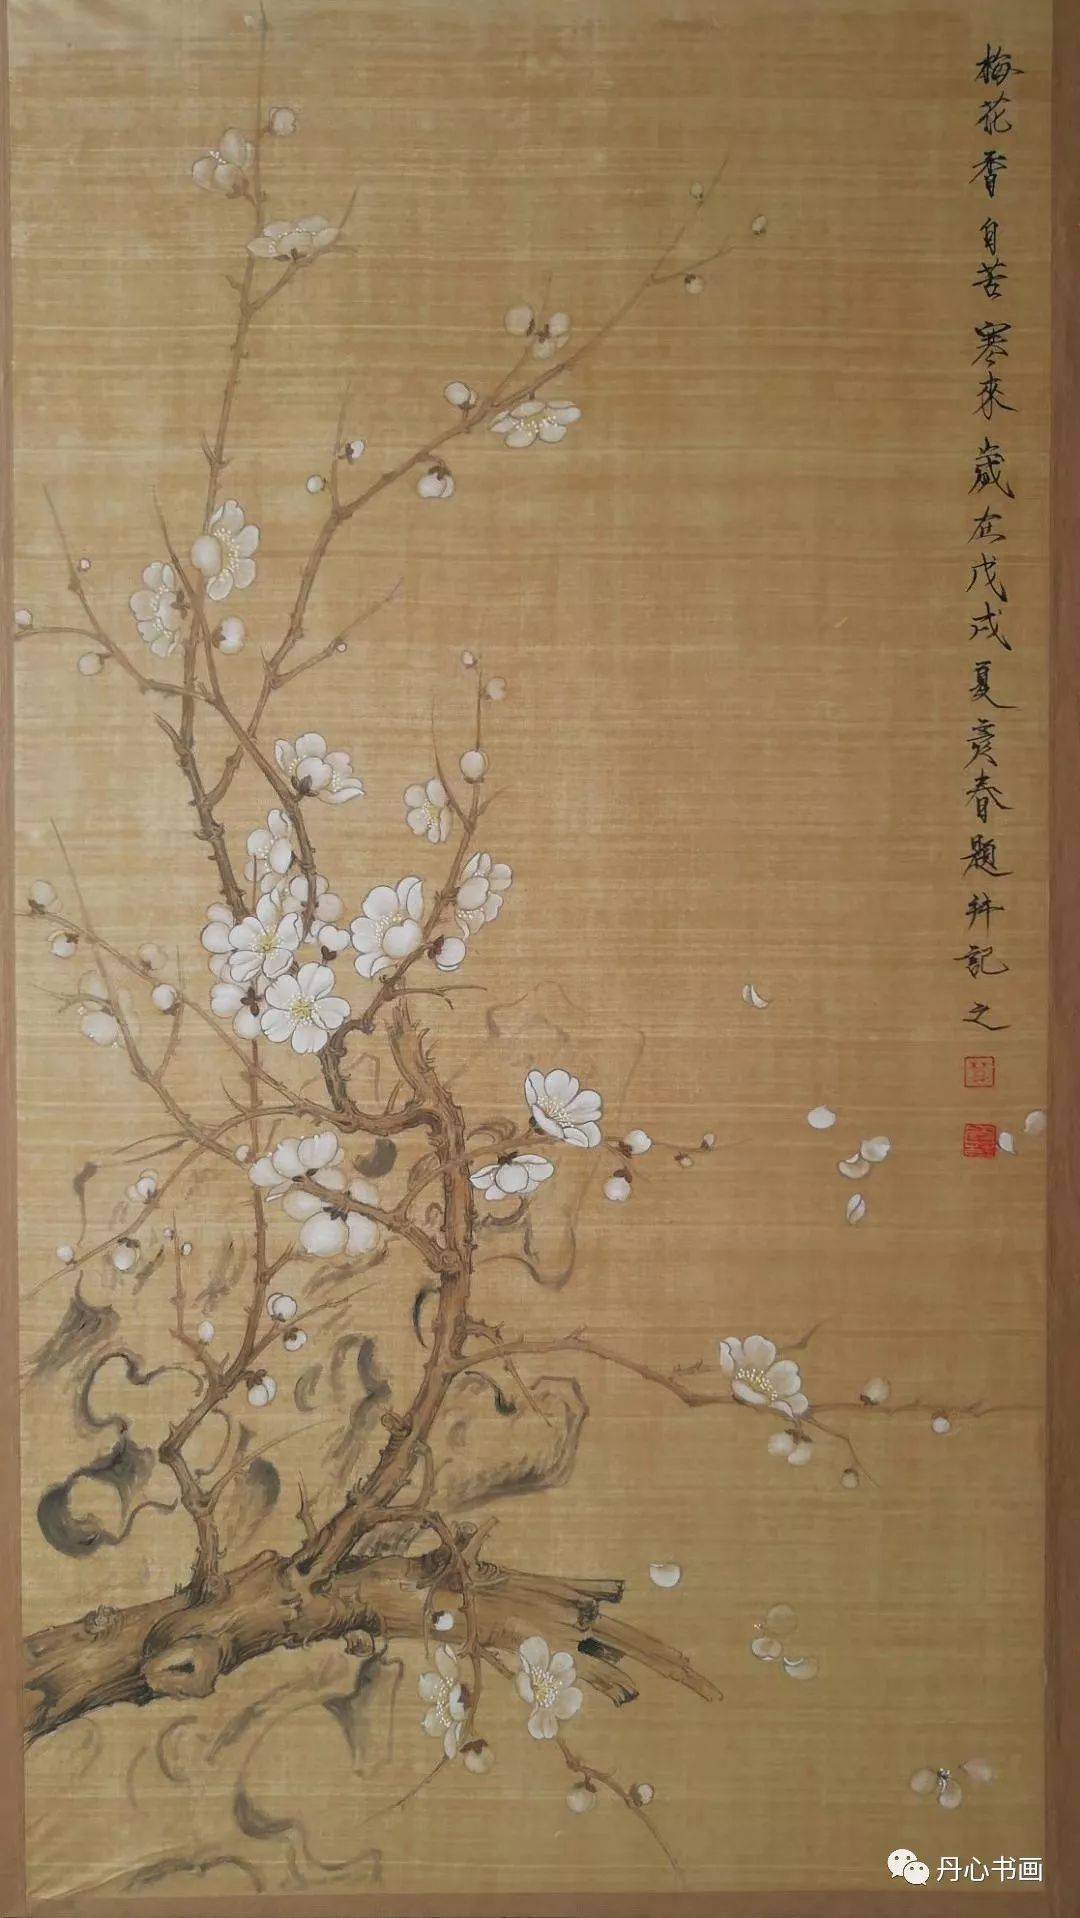 梅花香自苦寒來歲在戊戌夏奕春題并記之
丹心书画